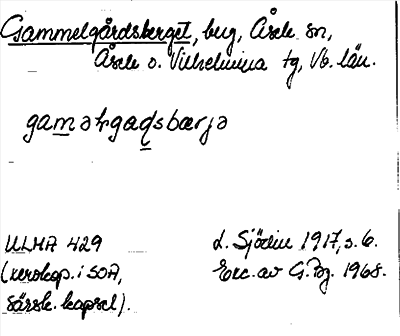 Gammelgårdsberget, berg, Åsele sn,
Åsele o. Vilhelmina tg, Vb. län.
gaməłgaḍsbærjə
ULMA 429
(xerokop. i SOA,
särsk. kapsel).
L. Sjödin 1917, s. 6.
Exc. av G. Pg. 1968.